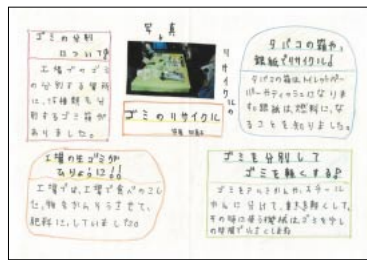 ゴミの分別
について
工場でのゴミ
の分別する場所
に、15種類も分
別するゴミ箱が
ありました。
写真
リサイクルの
ゴミのリサイクル
タバコの箱や、
銀紙でリサイクル
タバコの箱はトイレットペー
パーやティッシュになりま
す。銀紙は燃料にな
ることを知りました。
工場の生ゴミが
ひりょうに!!
工場では、工場で食べのこし
た物をかんそうさせて、
肥料にしていました。
ゴミを分別して
ゴミを軽くする♪
ゴミをアルミかんや、スチール
かんに分けて、重さを軽くして、
その時に使う機械はゴミを少し